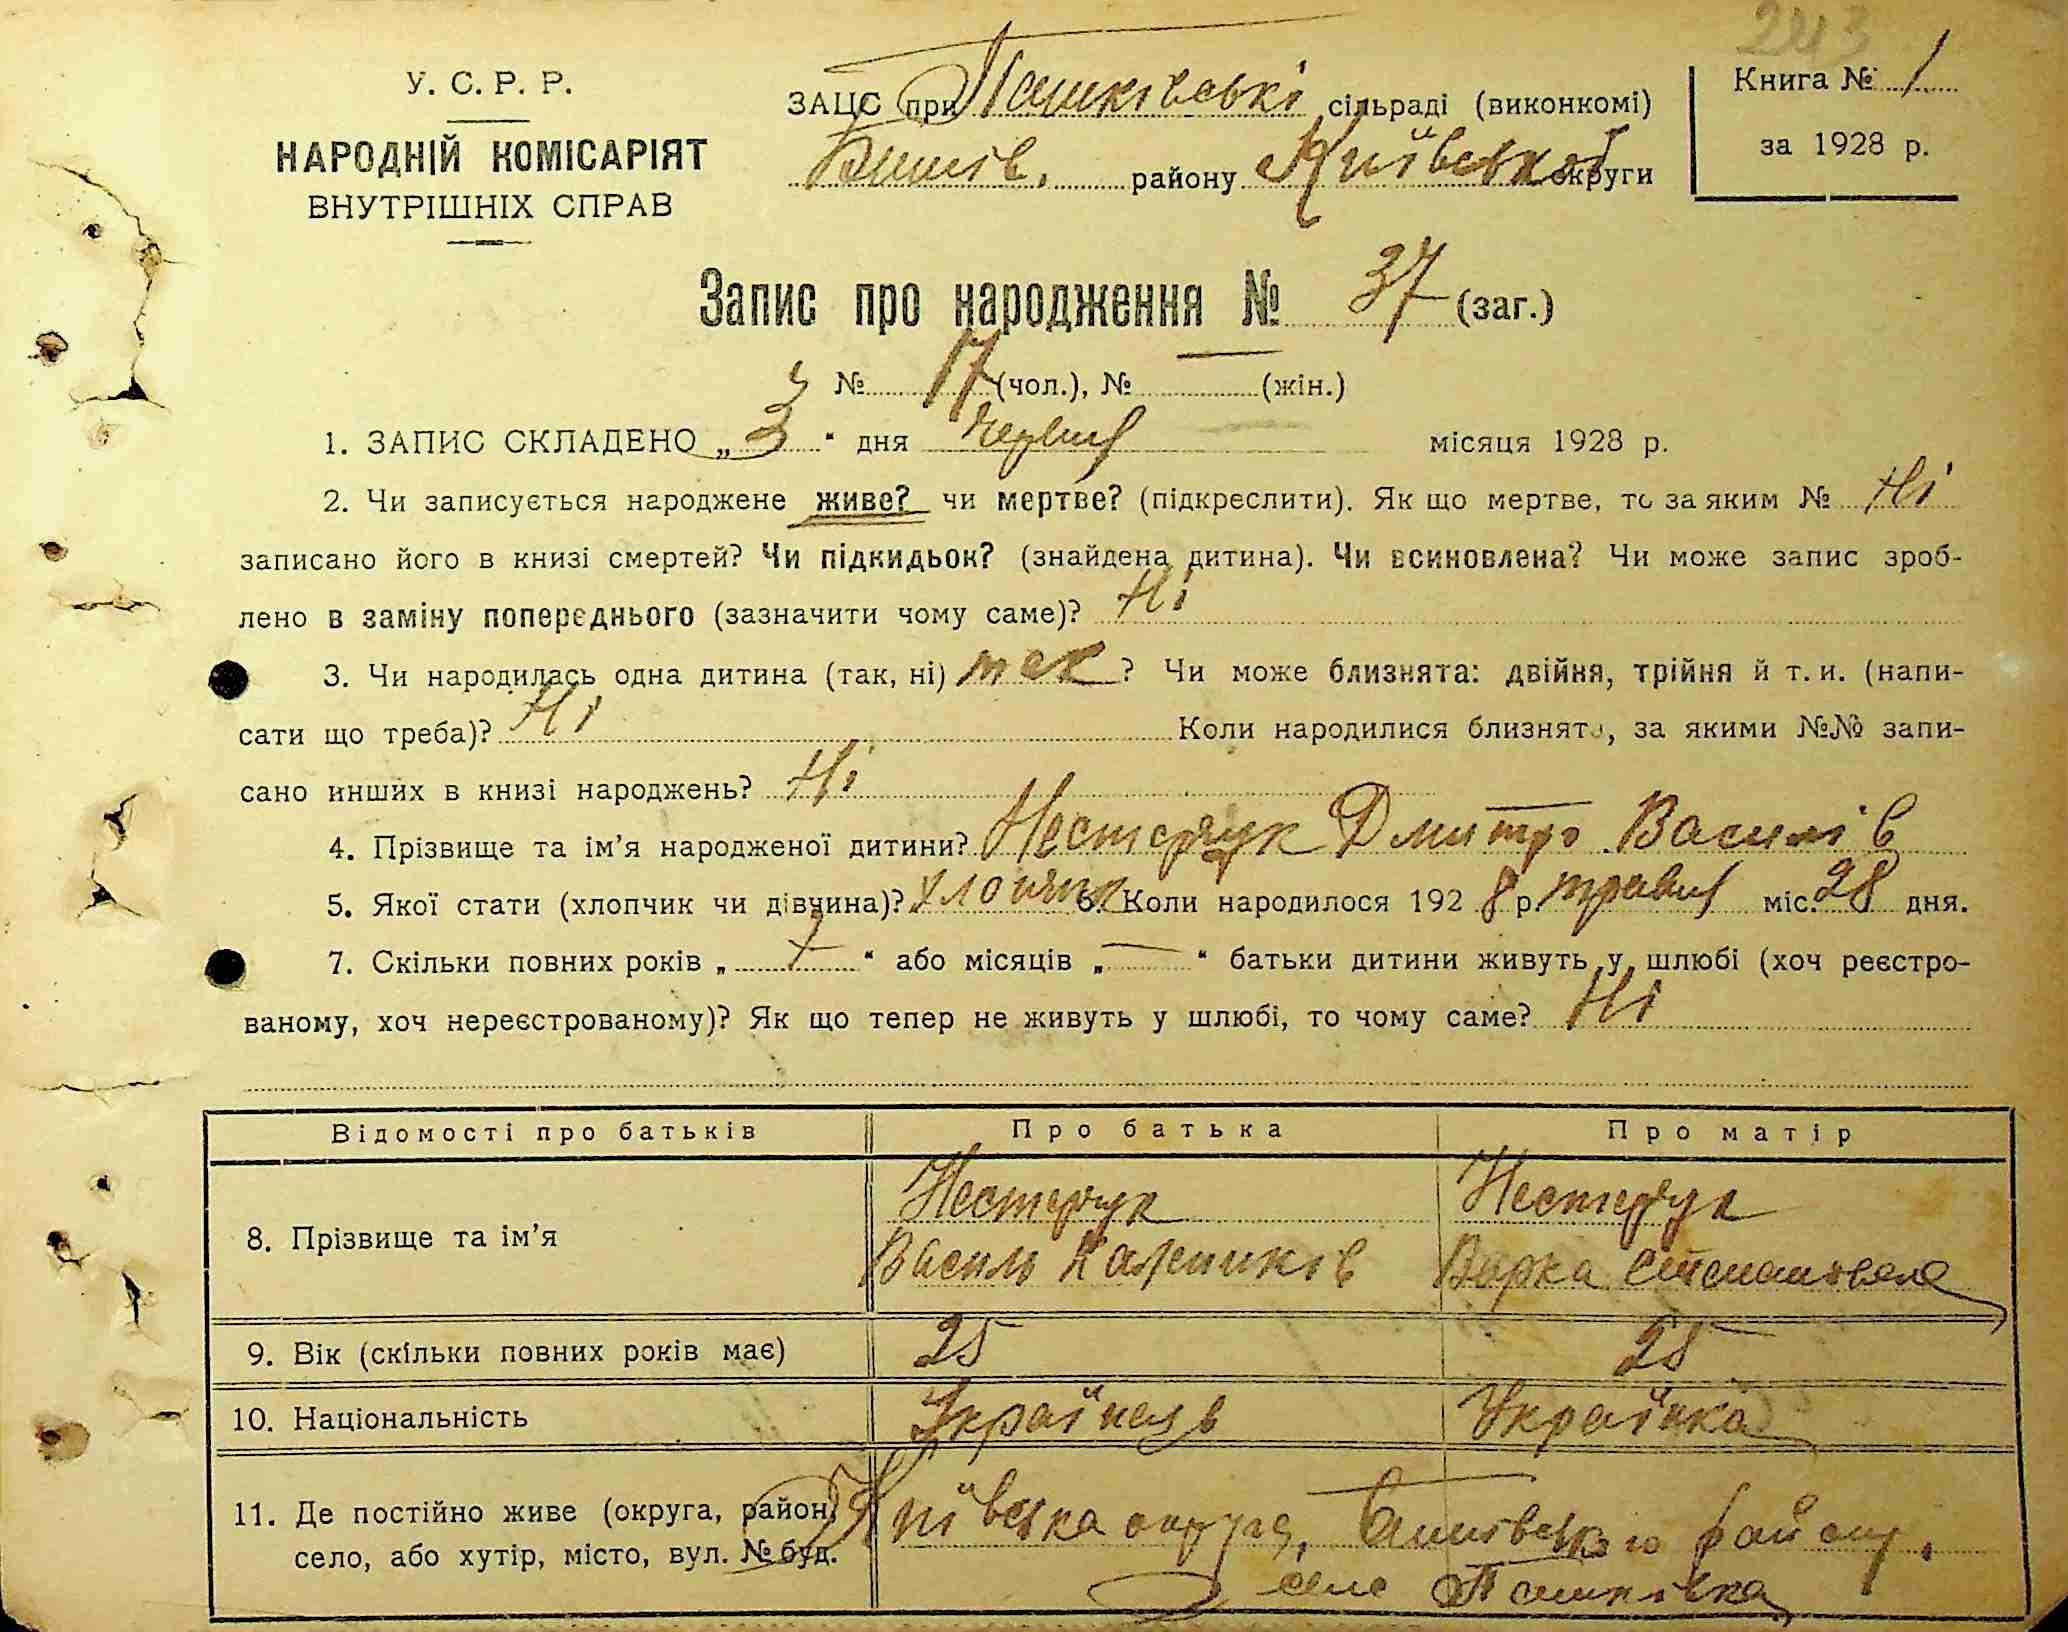 243
У. С. Р. Р.
НАРОДНІЙ КОМІСАРІЯТ
ВНУТРІШНІХ СПРАВ
ЗАЦС при Пашківські сільраді (виконкомі)
Бишів. району Київської округи
Книга № 1
за 1928 р.
Запис про народження № 37 (заг.)
№ 17 (чол.), № — (жін.)
1. ЗАПИС СКЛАДЕНО „3“ дня червня місяця 1928 р.
2. Чи записується народжене живе? чи мертве? (підкреслити). Як що мертве, то за яким № Ні
записано його в книзі смертей? Чи підкидьок? (знайдена дитина). Чи всиновлена? Чи може запис зроб-
лено в заміну попереднього (зазначити чому саме)? Ні
3. Чи народилась одна дитина (так, ні) так ? Чи може близнята: двійня, трійня й т. и. (напи-
сати що треба)? Ні Коли народилися близнята, за якими №№ запи-
сано инших в книзі народжень? Ні
4. Прізвище та ім’я народженої дитини? Нестерчук Дмитро Василів
5. Якої стати (хлопчик чи дівчина)? хлопчик 6. Коли народилося 1928 р. травня міс. 28 дня.
7. Скільки повних років „ 7 “ або місяців „ — “ батьки дитини живуть у шлюбі (хоч реєстро-
ваному, хоч нереєстрованому)? Як що тепер не живуть у шлюбі, то чому саме? Ні
Відомості про батьків Про батька Про матір
8. Прізвище та ім’я Нестерчук Василь Нестерчук Варка Степановна
9. Вік (скільки повних років має) 25 25
10. Національність Українець Українка
11. Де постійно живе (округа, район, Київська округа, Бишівського району,
село, або хутір, місто, вул. № буд. село Пашківка